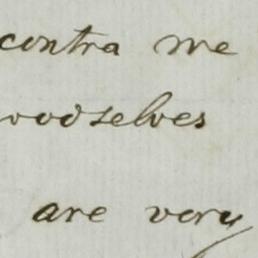 contra me
oodselves
are very